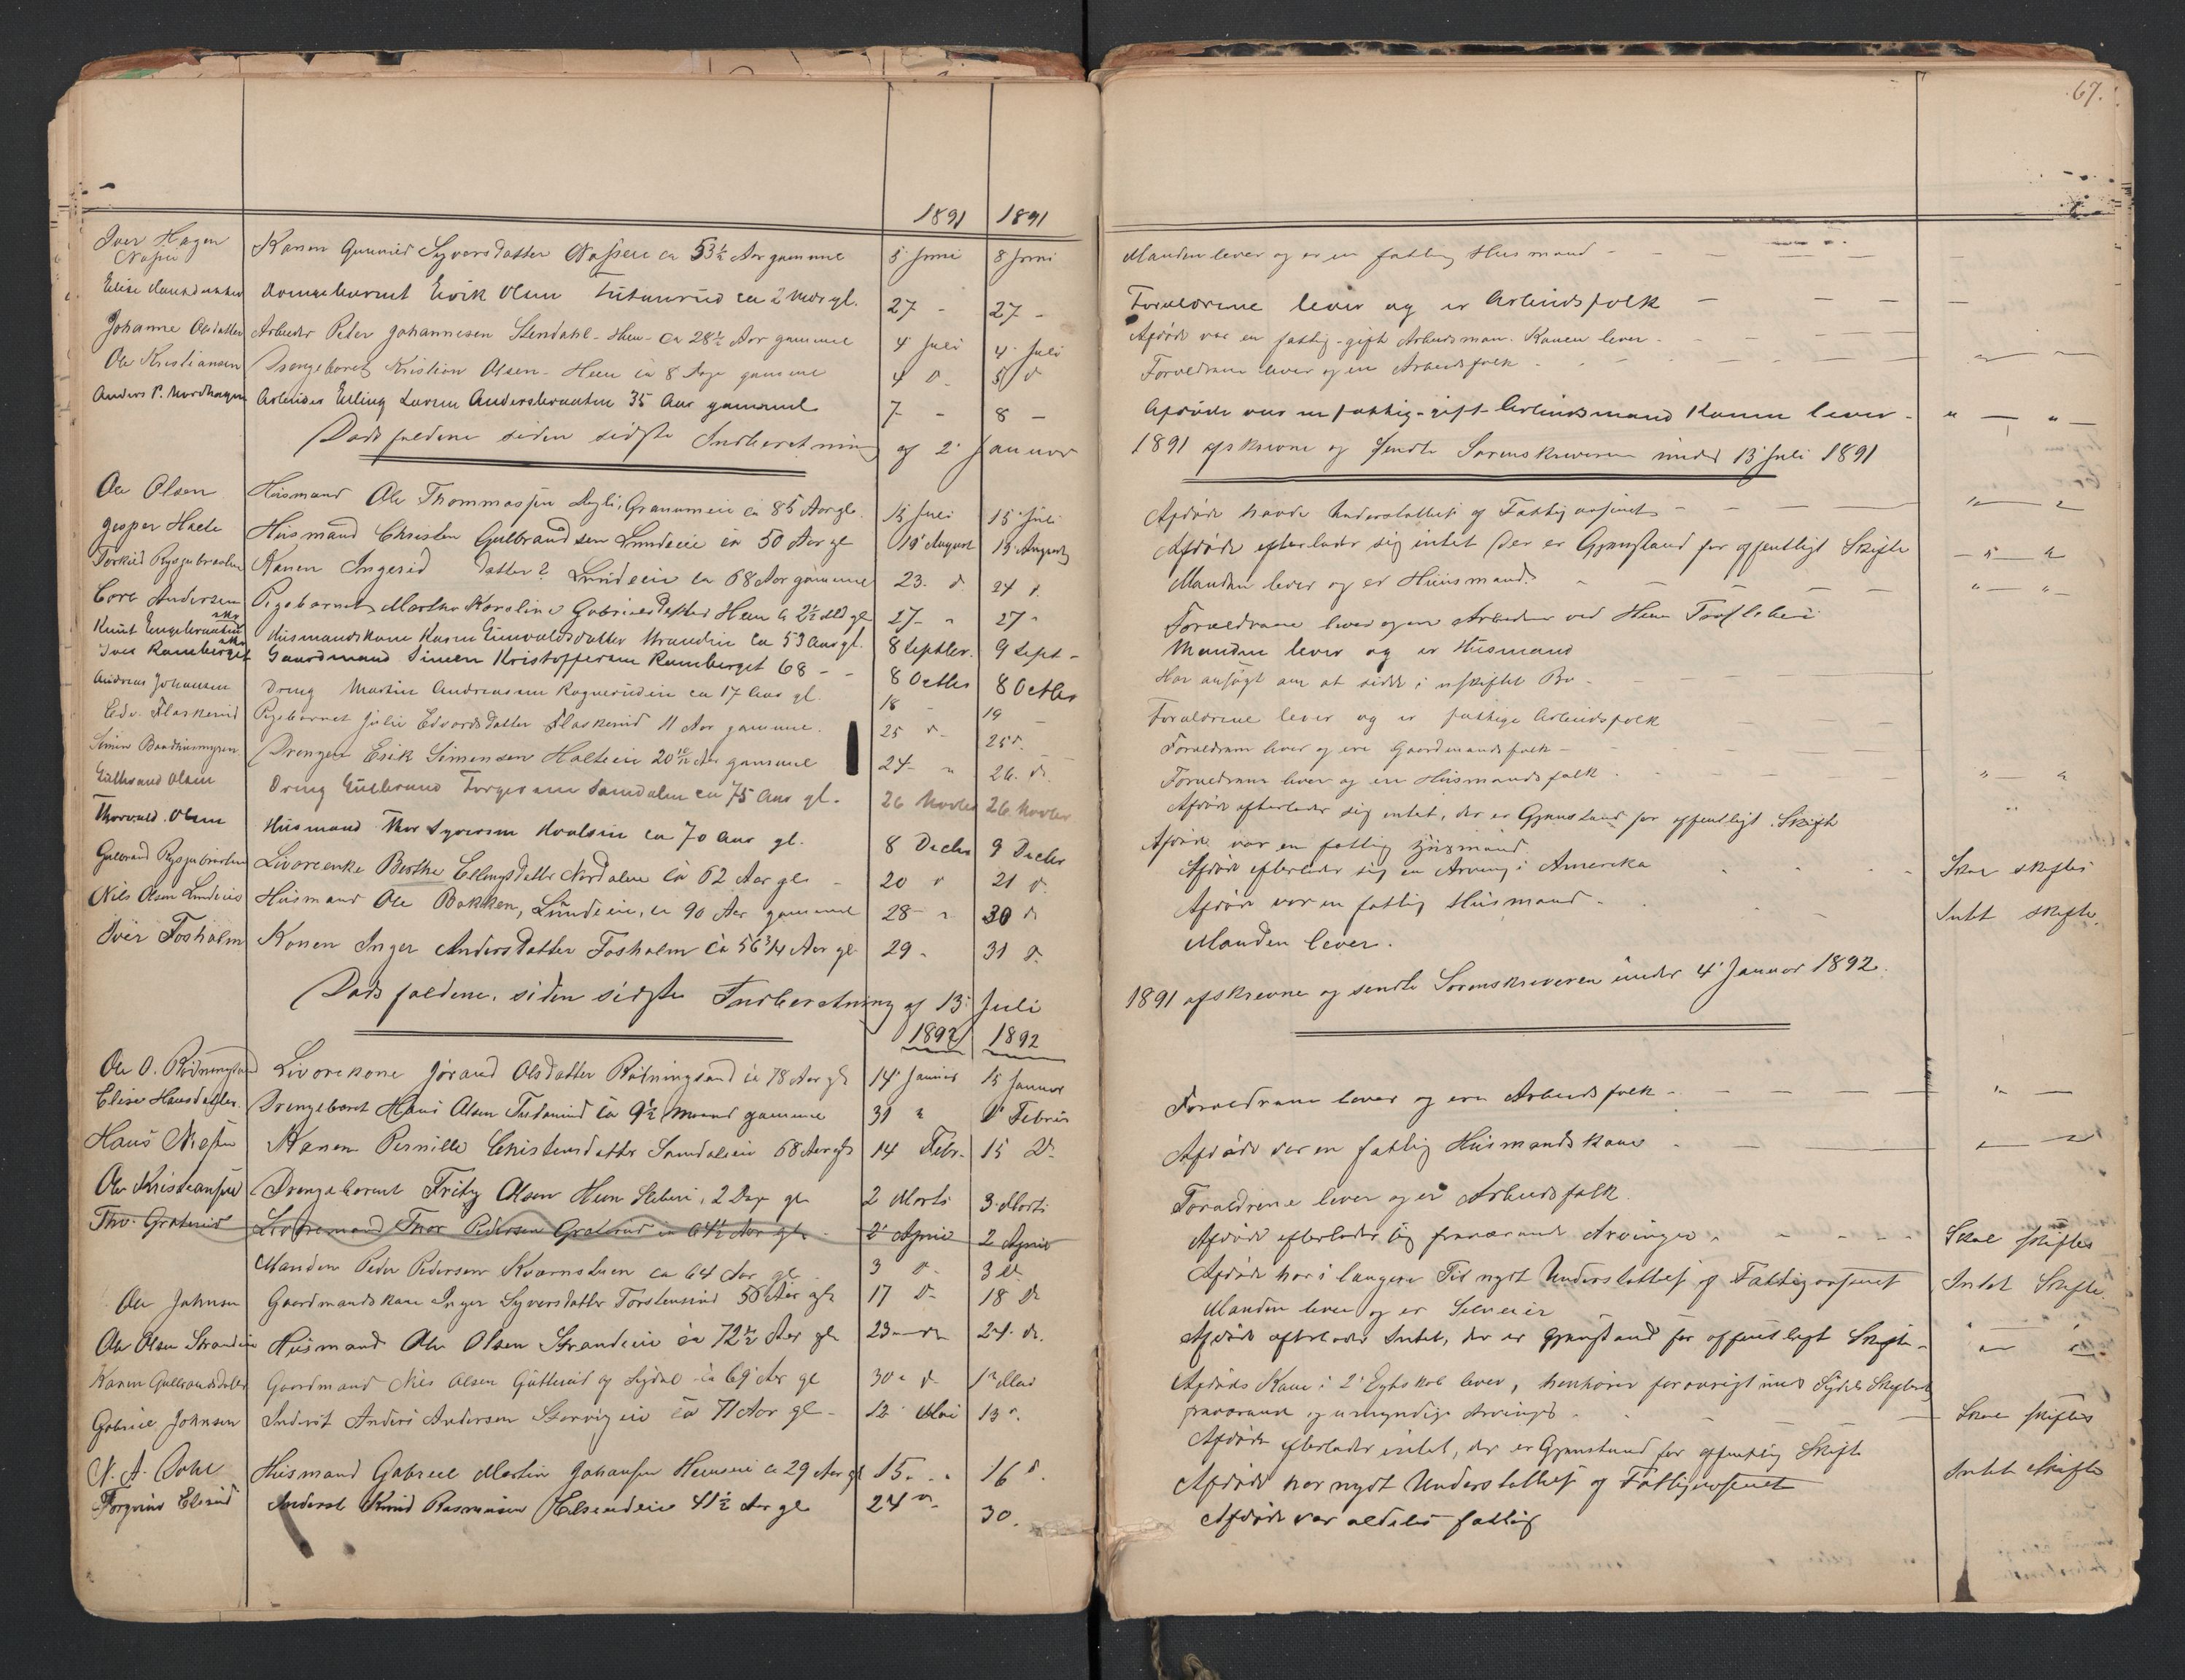 67.
1891 1891
Iver Hagen Konen Gunnild Syversdatter Nassen ca 53½ Aar gammel 5 Juni 8 Juni Manden lever og er en fattig Husmand
Elise Drengebarnet Eivik Olsen ca 2 gl. 27 - 27 - Forældrene lever og er Arbeidsfolk
Johanne Olsdatter Arbeider Peder Johannesen Stendahl - Hen - ca 28½ Aar gammel 4 Juli 4 Juli Afdøde var en fattig - gift Arbeidsman. Konen lever
Ole Kristiansen Drengebarnet Kristian Olsen - Hen ca 8 Dage gammel 4 d. 5 d Forældrene lever og er Arbeidsfolk
Anders P. Nordhagen Arbeider Elling Larsen Andersbraaten 35 Aar gammel 7 - 8 - Afdøde var en fattig - gift Arbeidsmand Konen lever
Dødsfaldene siden sidste Indberetning af 2 Januar 1891 afskrevne og sendte Sorenskriveren under 13 Juli 1891
Ole Olsen Husmand Ole Thommassen ca 85 Aar gl. 15 Juli 15 Juli Afdøde havde Understøttelse af Fattigvæsenet
Jesper Husmand Christen Gulbrandsen Lundeeie ca 50 Aar gl 19 August 19 August Afdøde efterlader sig intet der er Gjenstand for offentligt Skifte
Konen Ingerid datter? Lundeeie ca 68 Aar gammel 23. d 24 d. Manden lever og er Huusmand
Andersen Pigebarnet Martha Karoline Gabrielsdatter Hen ca 2½ gl 27 " 27 " Forældrene lever og er Arbeider ved Hen
Knut Engebraaten Husmandskone Karen Gunvaldsdatter ca 53 Aar gl. 8 Septbr. 9 Sept - Manden lever og er Husmand
Iver Ramberget Gaardmand Simen Kristoffersen Ramberget 68 - 8 Octbr 8 Octbr Har ansøgt om at sidde i uskiftet Bo
Andreas Johansen Dreng Martin Andreasen ca 17 Aar gl. 18 19 Forældrene lever og er fattige Arbeidsfolk
Edv. Flaskerud Pigebarnet Julie Edvardsdatter Flaskerud 11 Aar gammel. 25 d. 25 d. Forældrene lever og ere Gaardmandsfolk
Simen Drengen Erik Simensen 20 Aar gammel 24 - " 26. d. Forældrene lever og er Husmandsfolk
Gulbrand Olsen Dreng Gulbrand Torgersen ca 75 Aar gl. 26 Novbr 26 Novbr Afdøde efterlader sig intet, der er Gjenstand for offentligt Skifte
Thorvald Olsen Husmand Thor Syversen ca 70 Aar gl. 8 Decbr 9 Decbr Afdøde var en fattig Husmand
Gulbrand Livøreenke Berthe Ellingsdatter Nordalen ca 62 Aar gl 20 d 21 d. Afdøde efterlader sig en Arving i Amerika Skal skiftes
Nils Olsen Lundeeie Husmand Ole Bakken, Lundeeie, ca 90 Aar gammel 28 " 30 d. Afdøde var en fattig Husmand Intet skifte.
Iver Fosholm Konen Inger Andersdatter Fosholm ca 56¾ Aar gl 29 - 31 d. Manden lever.
Dødsfaldene siden sidste Indberetning af 13 Juli 1891 afskrevne og sendte Sorenskriveren under 4 Januar 1892.
1892 1892
Ole O. Livørekone Jørand Olsdatter ca 78 Aar gl 14 Januar 15 Januar
Elise Hansdatter Drengebarnet Hans Olsen ca 9½ Maaned gammel 31 " 1 Febru Forældrene lever og ere Arbeidsfolk
Hans Konen Pernille Christensdatter 68 Aar gl 14 Febr. 15 D. Afdøde var en fattig Husmandskone
Ole Kristiansen Drengebarnet Fritz Olsen Hen, 2 Dage gl 2 Marts 3 Marts Forældrene lever og er Arbeidsfolk.
Tho. Graterud Livøremand Thor Pedersen Graterud ca 64½ Aar gl 2 April 2 April Afdøde efterlader sig fraværende Arvinger Skal skiftes
Manden Peder Pedersen Kværnstuen ca 64 Aar gl 3 d. 3 d. Afdøde har i længere Tid nydt Understøttelse af Fattigvæsenet Intet Skifte.
Ole Johnsen Gaardmandskone Inger Syversdatter Torstensrud 56 Aar gl 17 D. 18 D. Manden lever og er Selveier
Ole Olsen Strandeie Husmand Ole Olsen Strandeie ca 72½ Aar gl 23 24. d. Afdøde efterlader Intet, der er Gjenstand for offentligt Skifte
Karen Gulbrandsdatter Gaardmand Nils Olsen Gutterud og ca 69 Aar gl 30 d. 1 Mai Afdødes Kone i 2 Egteskab lever, henhører forøvrigt med
fraværende og umyndige Arvinger Skal skiftes
Gabriel Johnsen Inderst Anders Andersen ca 71 Aar gl 12 Mai 13 d. Afdøde efterlader intet, der er Gjenstand for offentlig Skifte
N. A. Husmand Gabriel Martin Johansen ca 29 Aar gl 15 16 d. Afdøde har nydt Understøttelse af Fattigvæsenet Intet Skifte
Inderst Knud Rasmussen 41½ Aar gl 24 d. 30. Afdøde var aldeles fattig